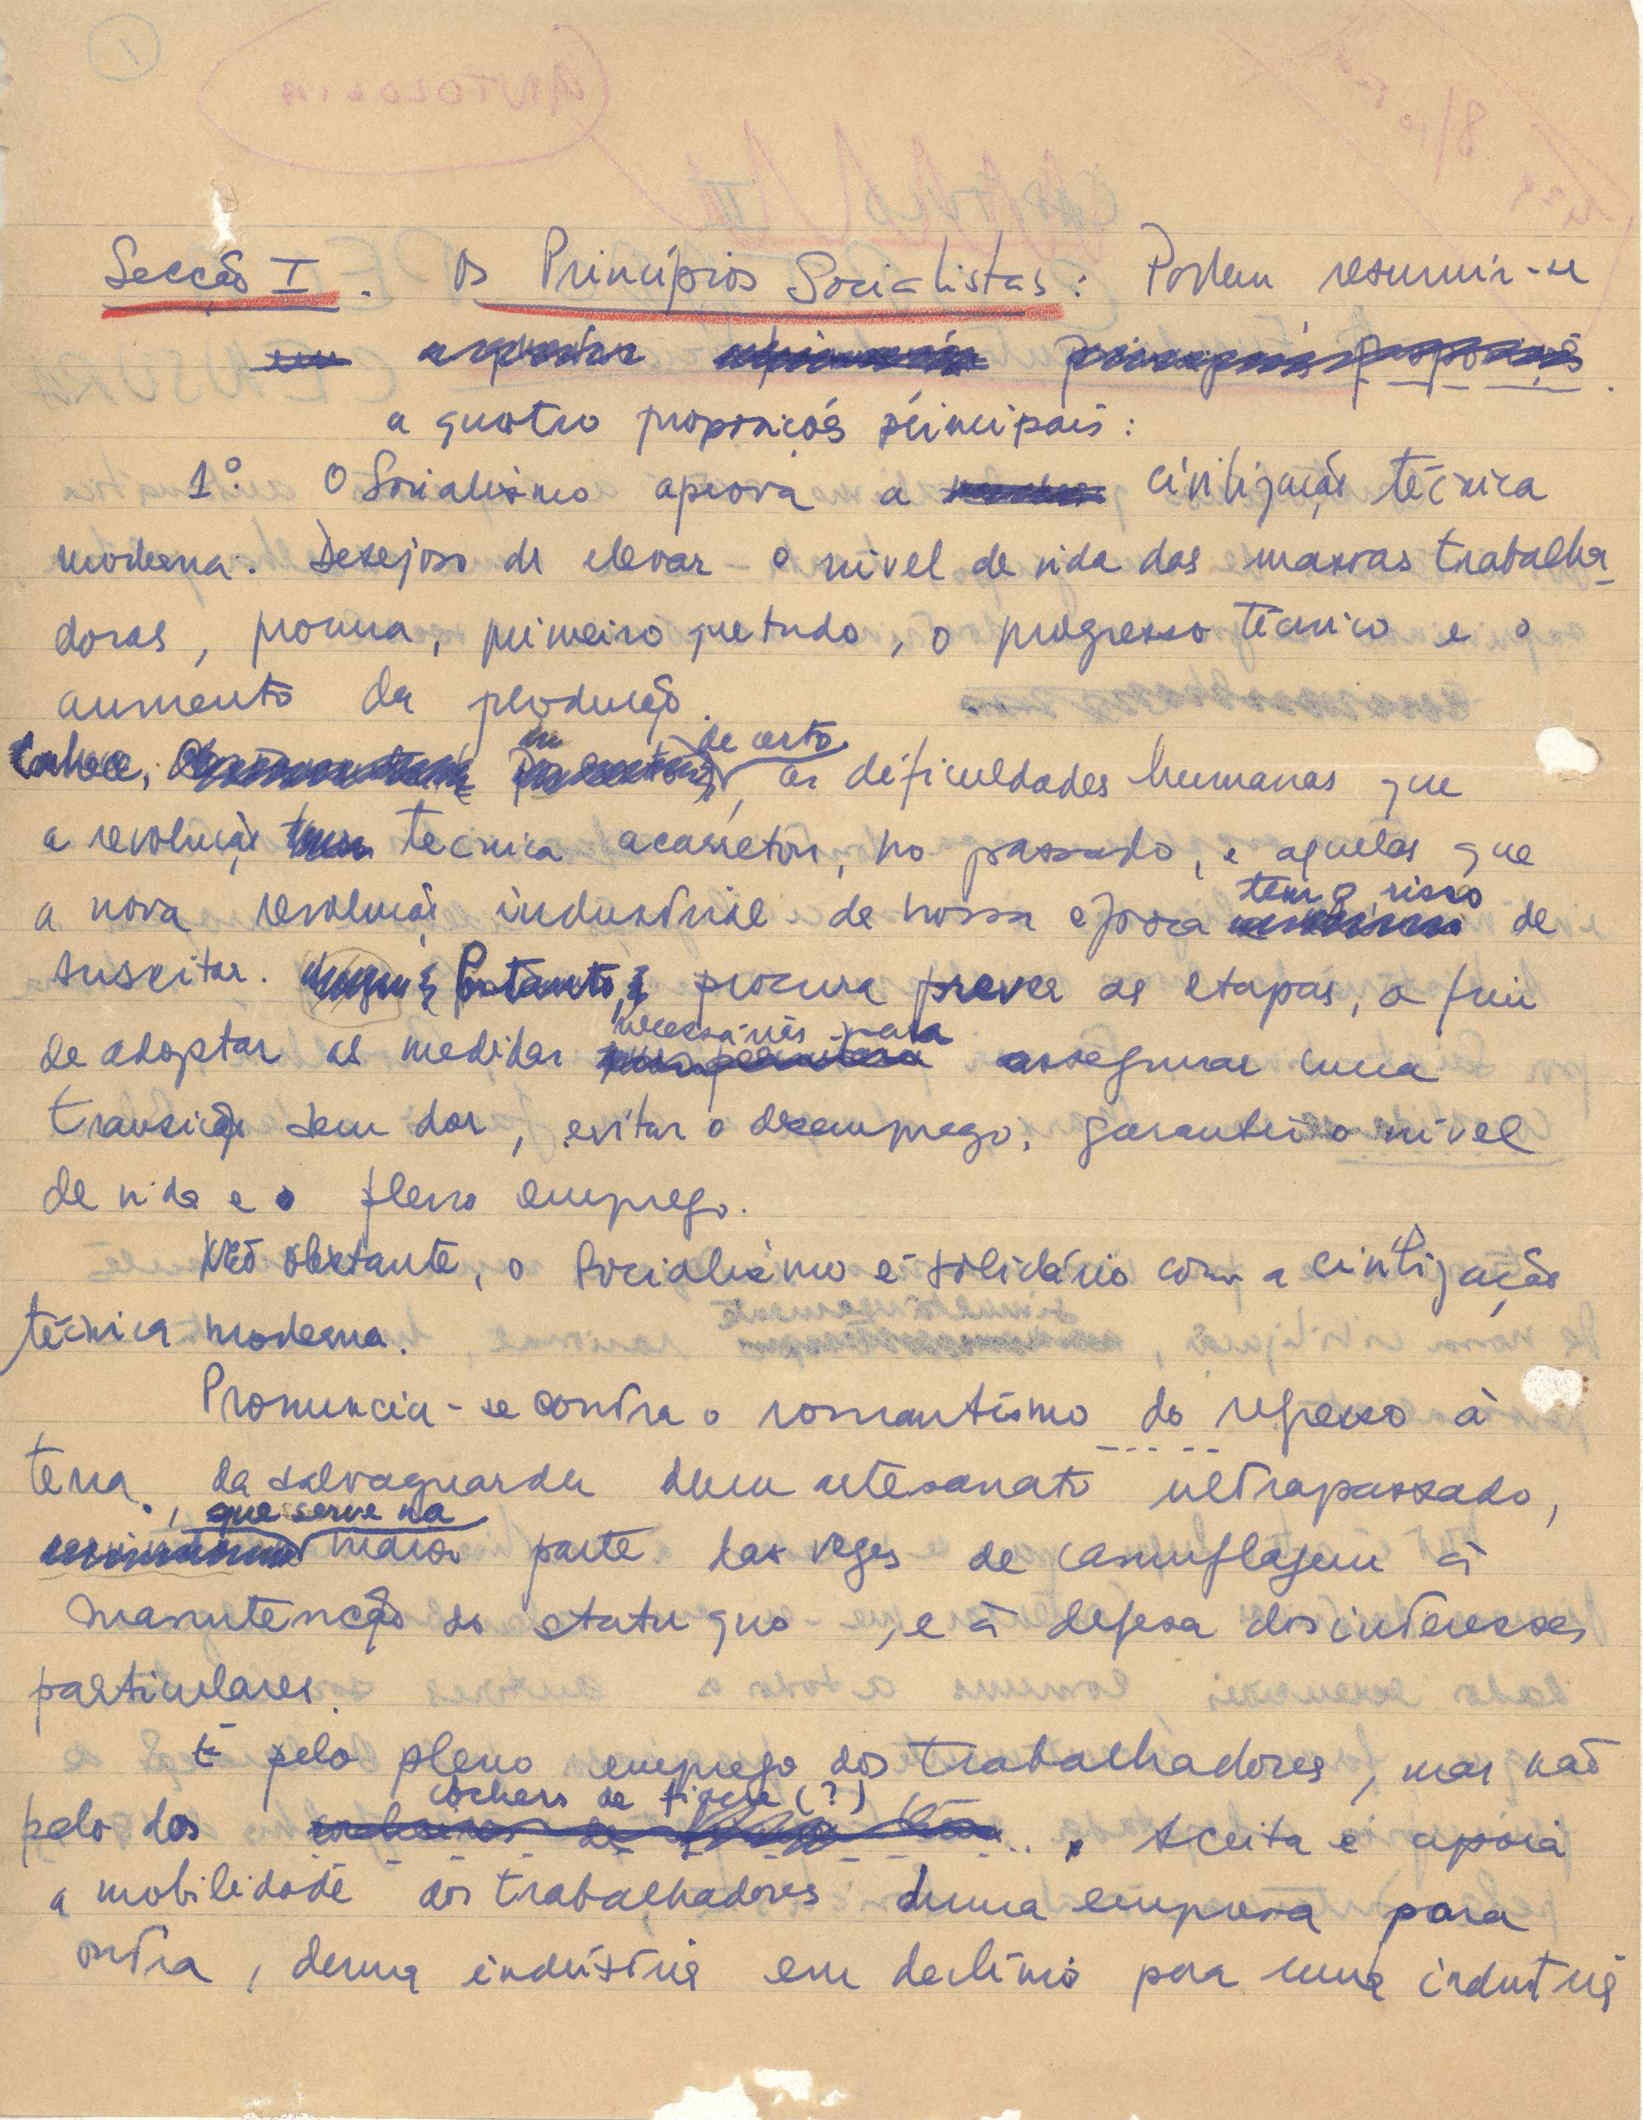 1
Secção I. Os Princípios Socialistas: Podem resumir-se
em
a quatro proposições principais:
1º. O Socialismo aprova a civilização técnica
moderna. Desejoso de elevar o nível de vida das massas trabalha-
doras, procura, primeiro que tudo, o progresso técnico e o
aumento da produção.
de certo
Conhece, as dificuldades humanas que
a revolução técnica acarretou, no passado, e aquelas que
tem o risco
a nova revolução industrial de nossa época de
suscitar. Portanto, procura prever as etapas, a fim
necessárias para
de adoptar as medidas assegurar uma
transição sem dor, evitar o desemprego, garantir o nível
de vida e o pleno emprego.
Não obstante, o Socialismo é solidário com a civilização
técnica moderna.
Pronuncia-se contra o romantismo do regresso à
terra, da salvaguarda dum artesanato ultrapassado,
que serve na
maior parte das vezes de camuflagem à
manutenção do statu quo, e à defesa dos interesses
particulares.
É pelo pleno emprego dos trabalhadores, mas não
cochers de fiacre (?)
pelo dos ... Aceita e apoia
a mobilidade dos trabalhadores duma empresa para
outra, duma indústria em declínio para uma indústria